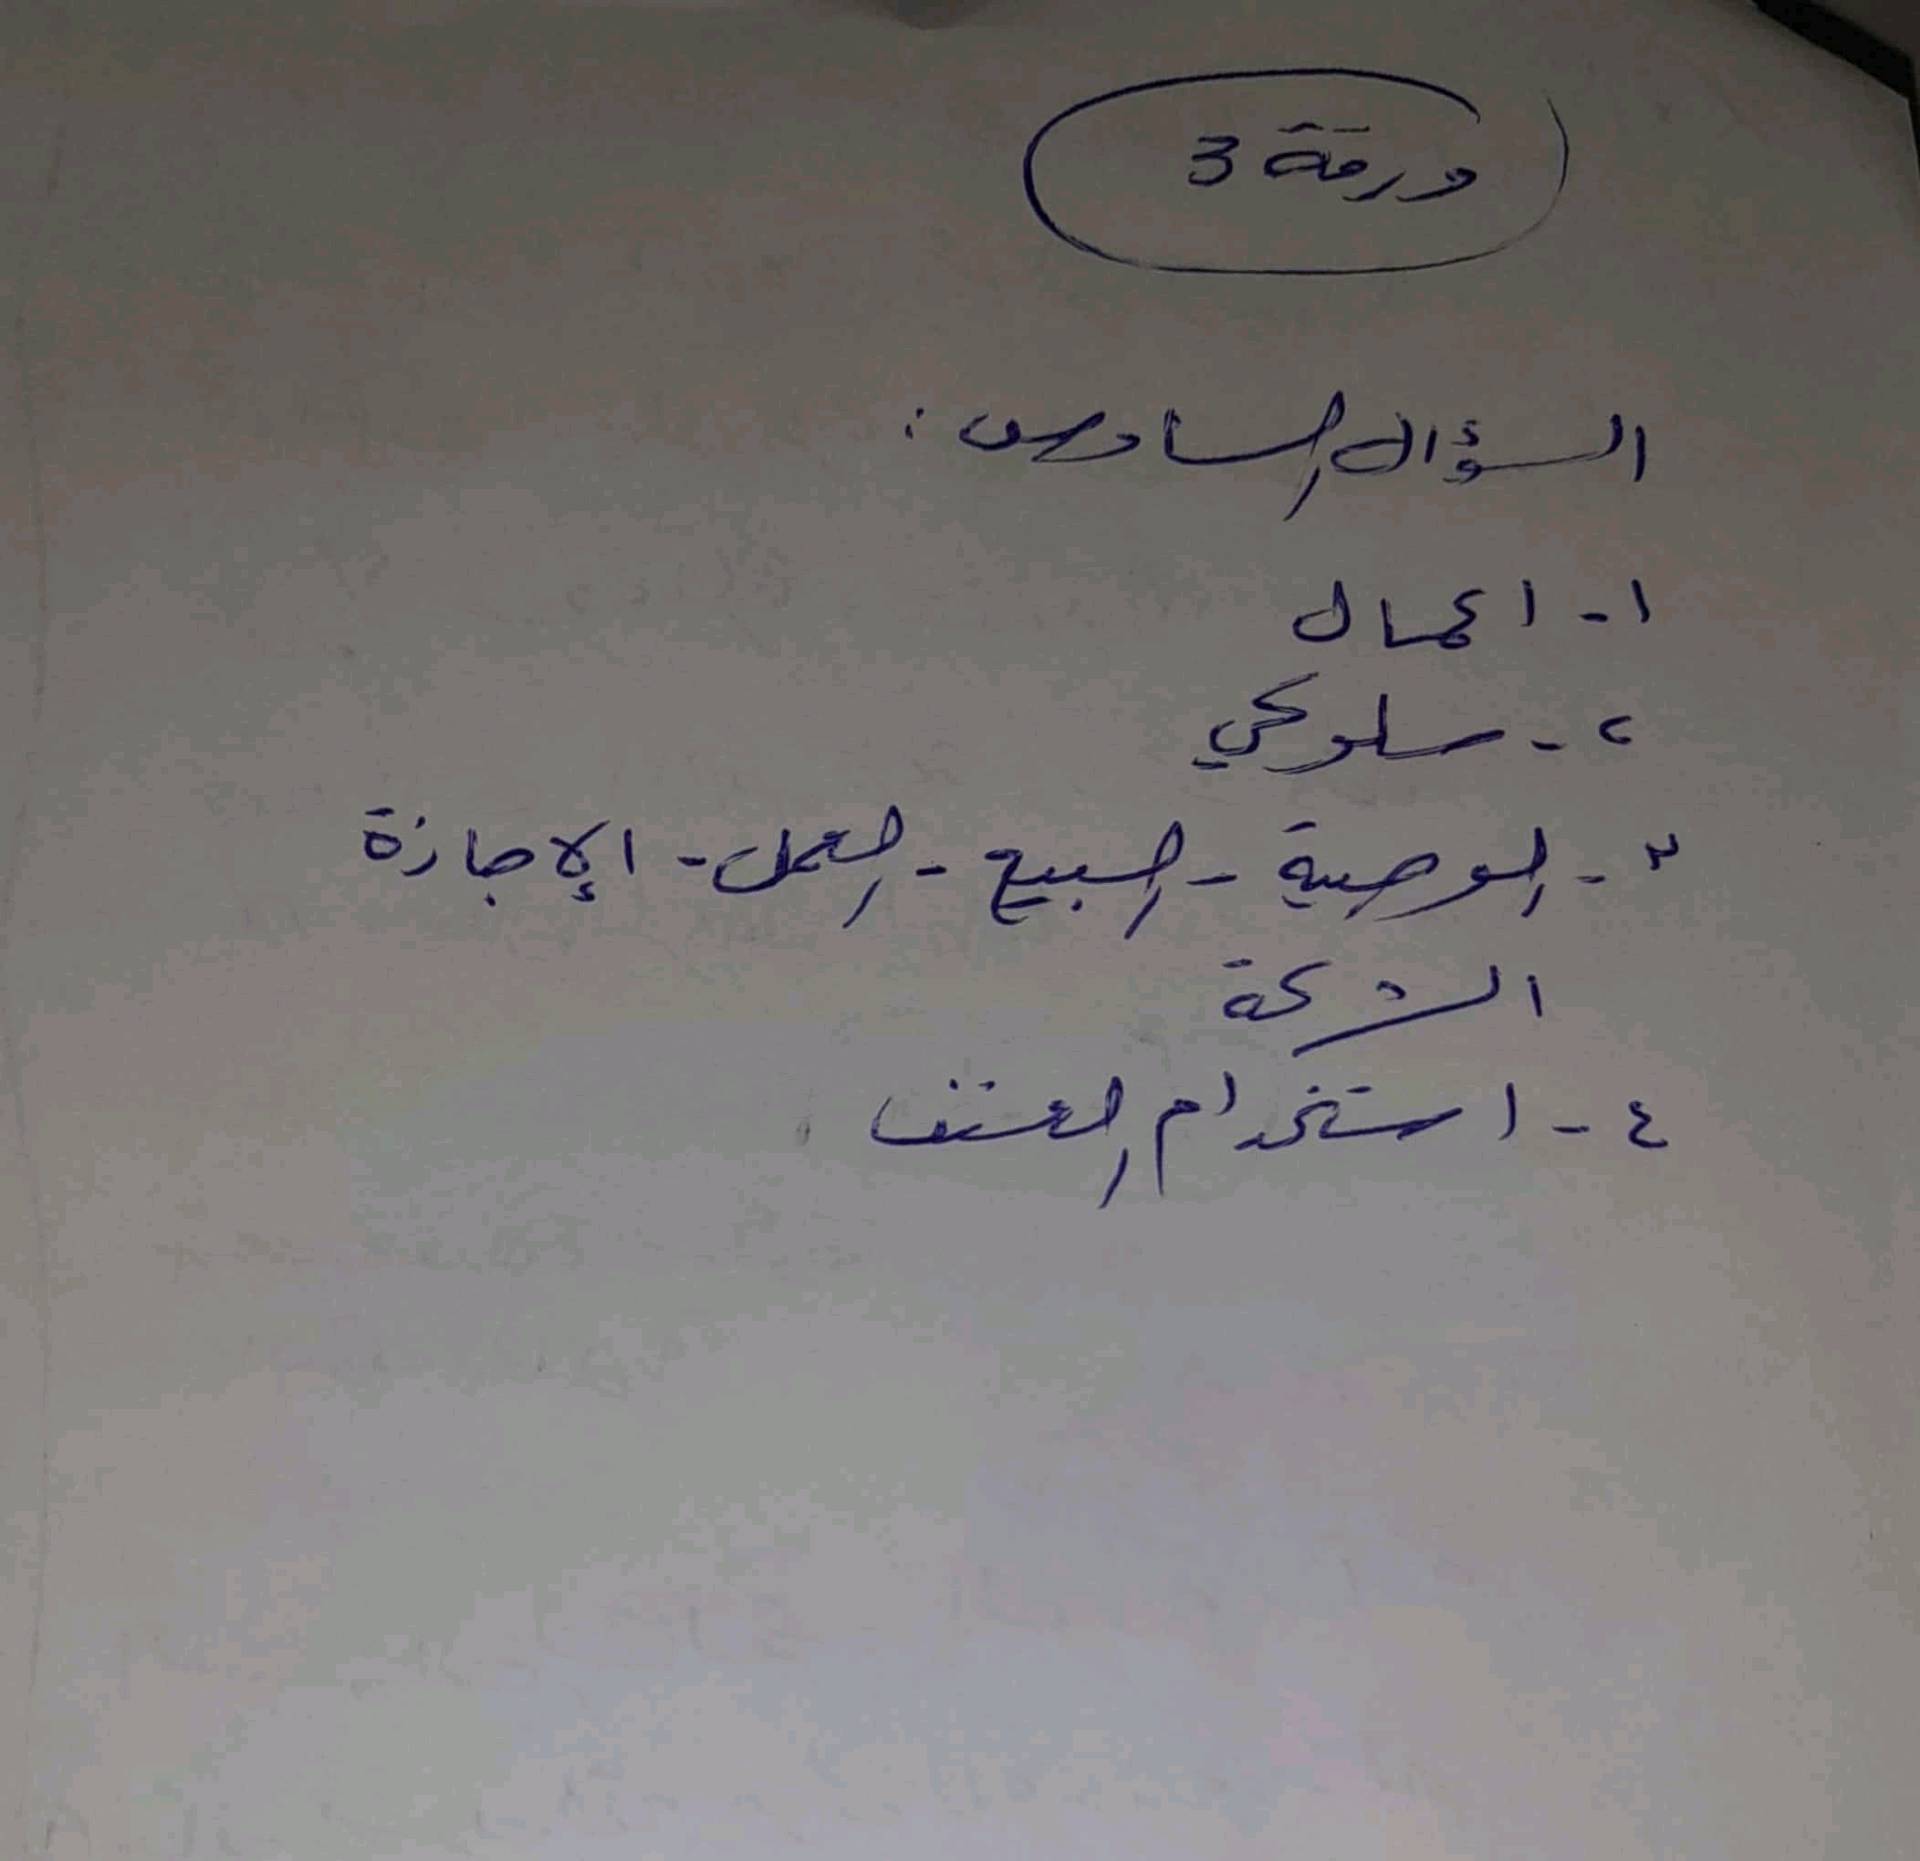 ورقة 3
السؤال السادس :
١ - اعمال
٢ - سلوكي
٣ - الوصية - البيع - العمل - الإجازة
الشركة
٤ - استخدام العنف